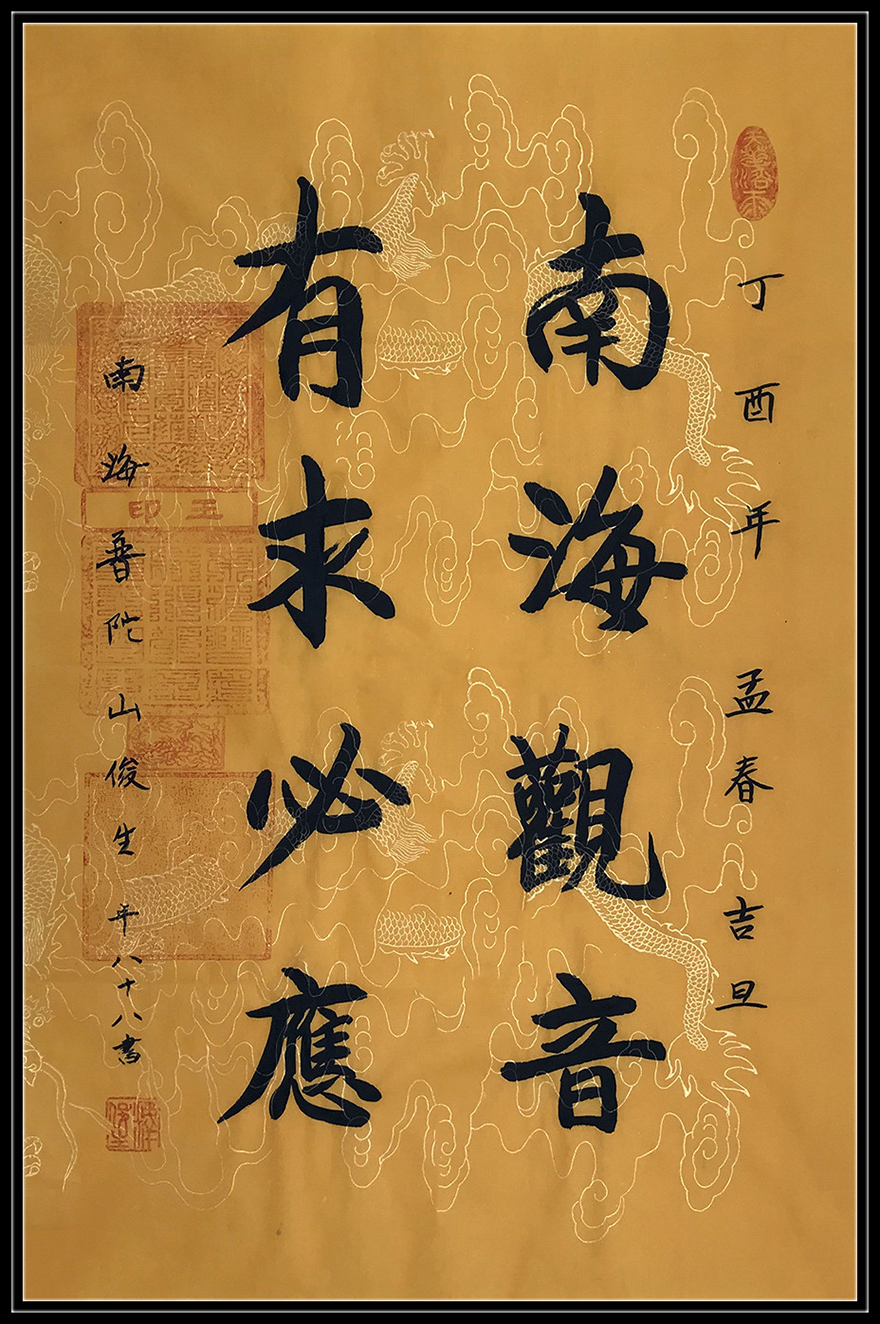 丁酉年 孟春 吉旦
南海觀音
有求必應
南海普陀山俊生 年八十八書